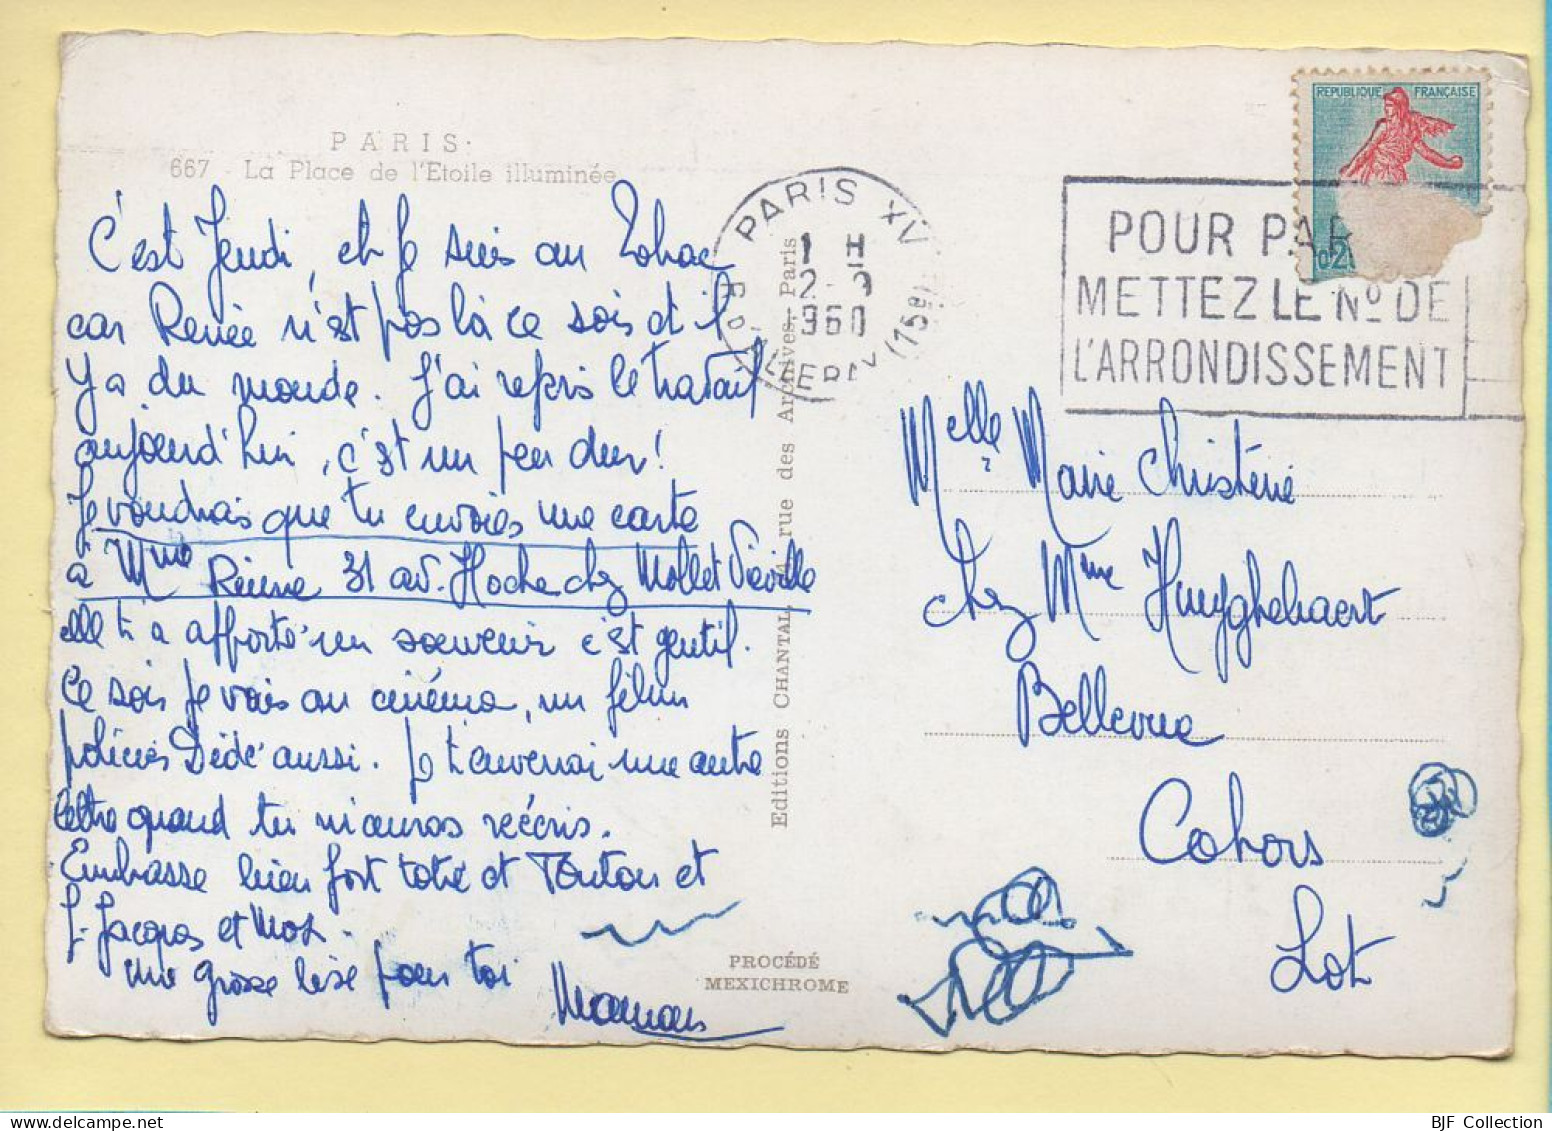 PARIS.
667 - La Place de l'Etoile illuminée
C'est Jeudi, et je suis au Tabac
car Renée n'est pas là ce soir et il
y a du monde. J'ai repris le travail
aujourd'hui, c'est un peu dur!
Je voudrais que tu envoies une carte
à Mme Rième 31 av. Hoche chez Mollet Viéville
elle t'a apporté un souvenir c'est gentil.
Ce soir je vais au cinéma, un film
policier Dédé aussi. Je t'enverrai une autre
lettre quand tu m'auras réécris.
Embrasse bien fort tatie et Tonton et
J. Jacques et
une grosse bise pour toi
Maman
Editions CHANTAL, rue des Archives, Paris
PROCÉDÉ
MEXICHROME
PARIS XV
1 H
2 - 9
960
(15e)
POUR PAR
METTEZ LE No DE
L'ARRONDISSEMENT
REPUBLIQUE FRANÇAISE
0,2
Melle Marie Christine
chez Mme Huyghebaert
Bellevue
Cahors
Lot
BJF Collection